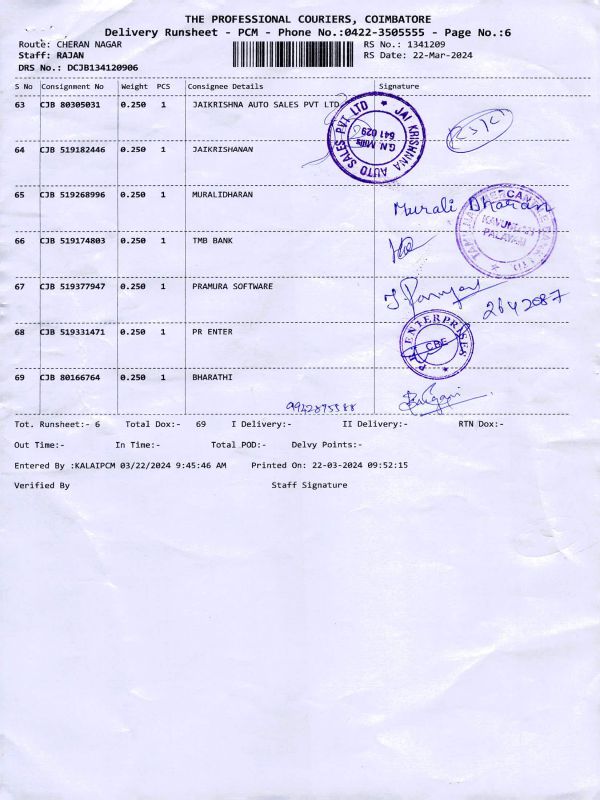 THE PROFESSIONAL COURIERS, COIMBATORE
Delivery Runsheet - PCM - Phone No.:0422-3505555 - Page No.:6
Route: CHERAN NAGAR RS No.: 1341209
Staff: RAJAN RS Date: 22-Mar-2024
DRS No.: DCJB134120906
S No Consignment No Weight PCS Consignee Details Signature
63 CJB 80305031 0.250 1 JAIKRISHNA AUTO SALES PVT LTD
JAI KRISHNNA AUTO SALES PVT LTD
G.N. Mills
641 029
64 CJB 519182446 0.250 1 JAIKRISHANAN
65 CJB 519268996 0.250 1 MURALIDHARAN Murali Dharan
TAMILNAD MERCANTILE BANK LTD.
KAVUNDAM
PALAYAM
66 CJB 519174803 0.250 1 TMB BANK
67 CJB 519377947 0.250 1 PRAMURA SOFTWARE
2642087
68 CJB 519331471 0.250 1 PR ENTER
PR ENTERPRISES
CBE
69 CJB 80166764 0.250 1 BHARATHI
9942875388
Tot. Runsheet:- 6 Total Dox:- 69 I Delivery:- II Delivery:- RTN Dox:-
Out Time:- In Time:- Total POD:- Delvy Points:-
Entered By :KALAIPCM 03/22/2024 9:45:46 AM Printed On: 22-03-2024 09:52:15
Verified By Staff Signature